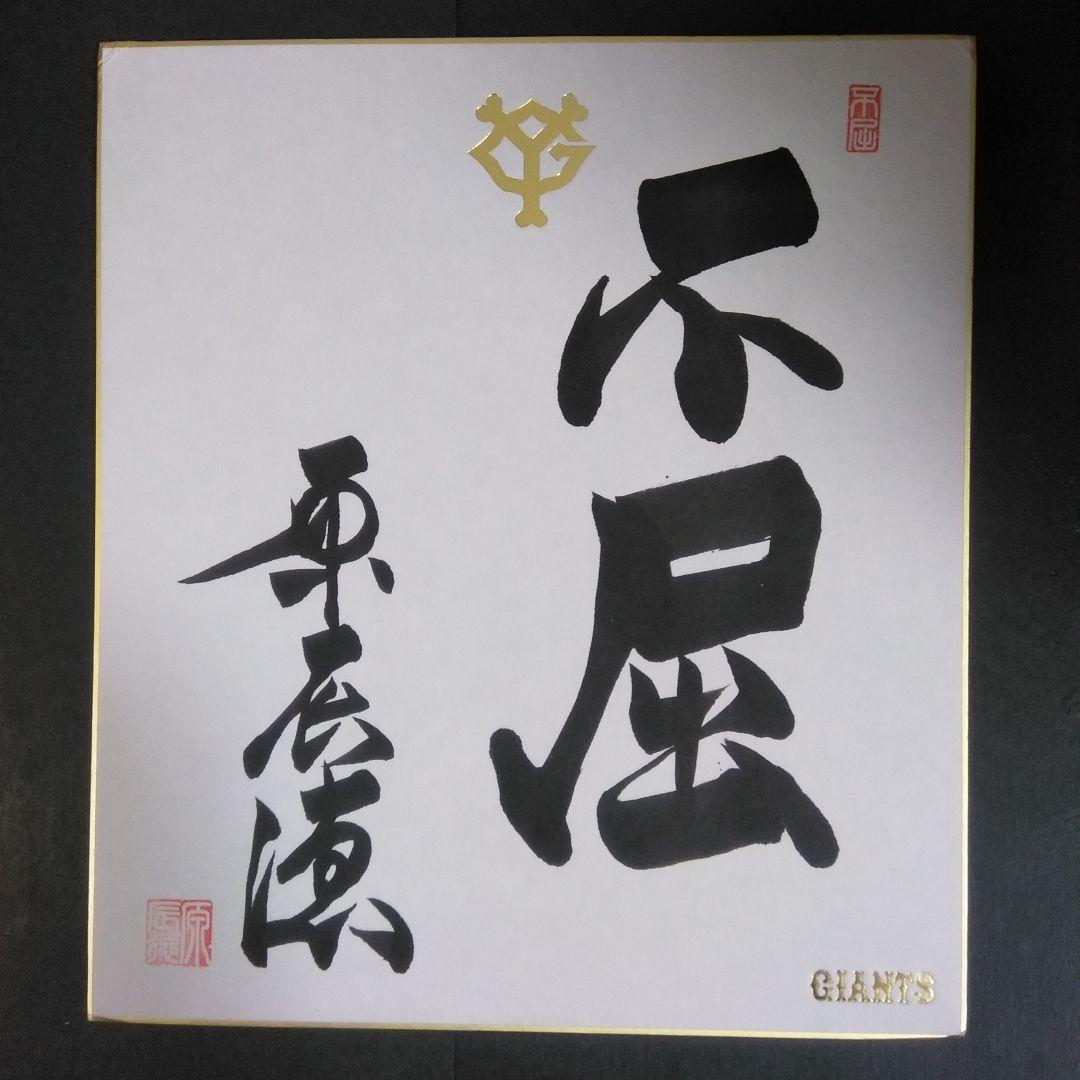 不屈
不屈
原辰徳
原辰徳
GIANTS